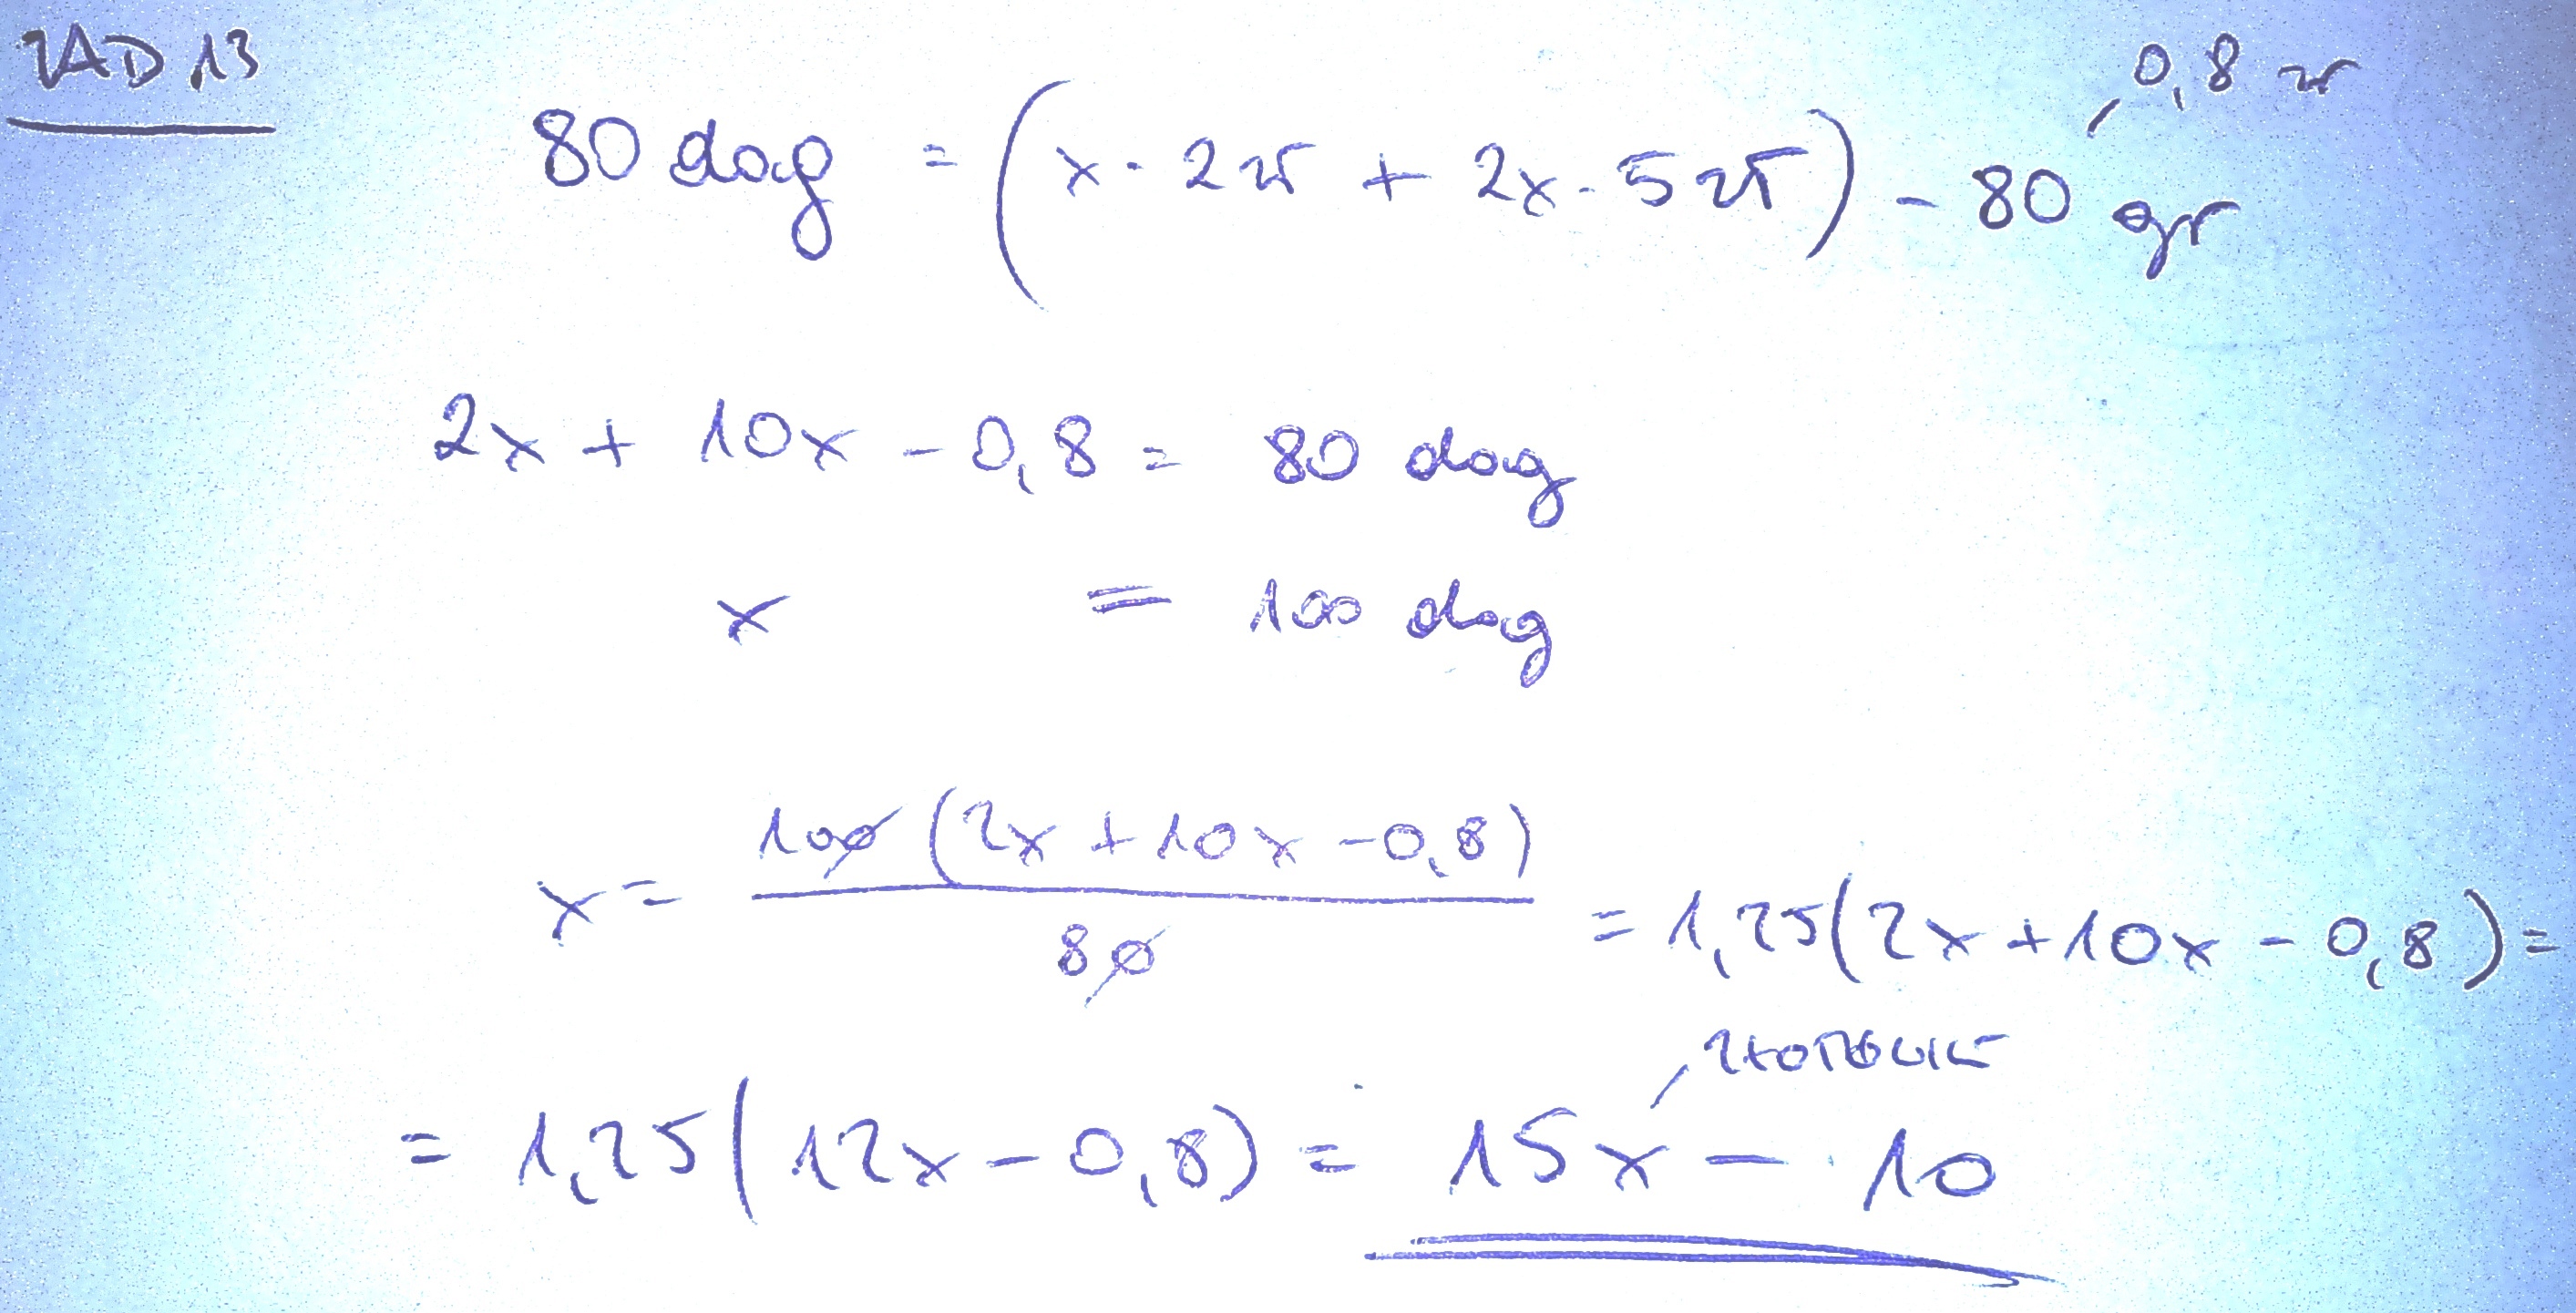 ZAD 13
0,8 zł
80 dag = (x · 2 zł + 2x · 5 zł) - 80 gr
2x + 10x - 0,8 = 80 dag
x = 100 dag
x = 100 (2x + 10x - 0,8) / 80 = 1,25(2x + 10x - 0,8) =
= 1,25(12x - 0,8) = 15x - 10